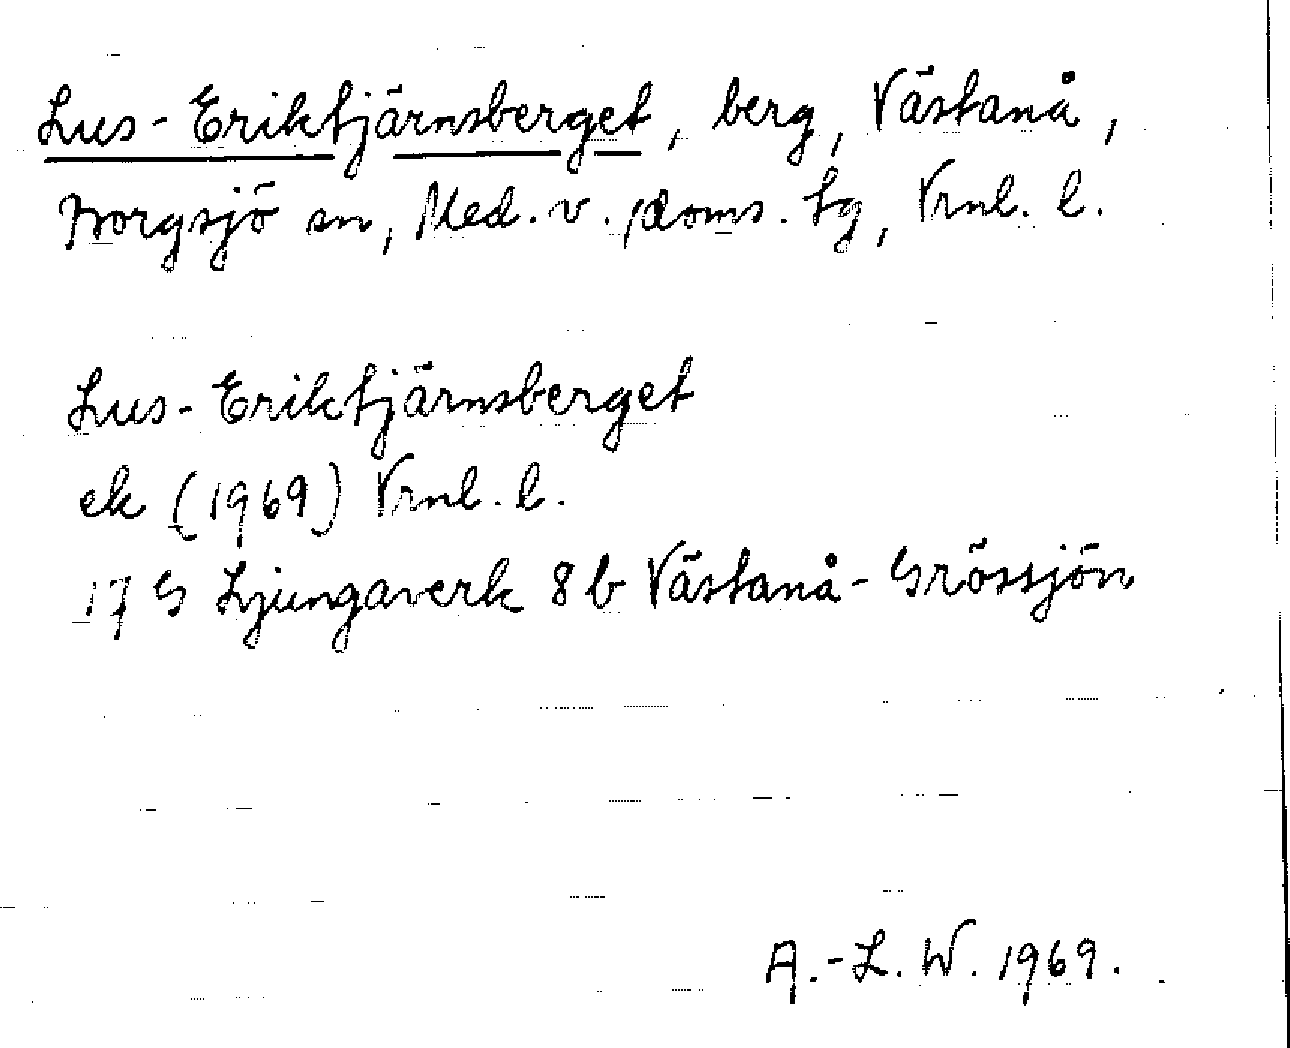 Lus-Eriktjärnsberget, berg, Västanå,
Borgsjö sn, Med. v. doms. tg, Vrnl. l.
Lus-Eriktjärnsberget
ek (1969) Vrnl. l.
17 G Ljungaverk 8 b Västanå-Grössjön
A.-L. W. 1969.